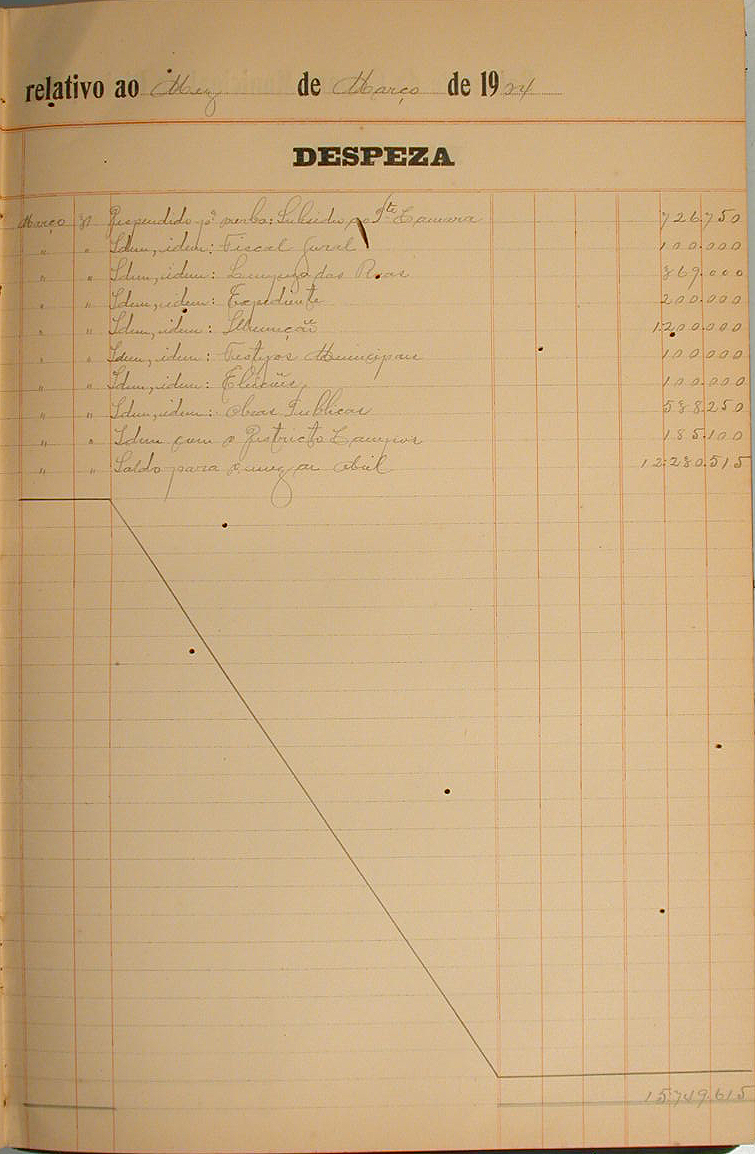 relativo ao Mez de Março de 1924
DESPEZA
Março 31 Despendido pª verba: Subsidio ao Camara 726.750
" " Idem, idem: Fiscal Geral 100.000
" " Idem, idem: Limpeza das Ruas 869.000
" " Idem, idem: Expediente 200.000
" " Idem, idem: Illuminação 1:200.000
" " Idem, idem: Festejos Municipaes 100.000
" " Idem, idem: Eleições 100.000
" " Idem, idem: Obras Publicas 588.250
" " Idem com o Districto Campos 185.100
" " Saldo para o mez de Abril 12:280.515
15:749.615